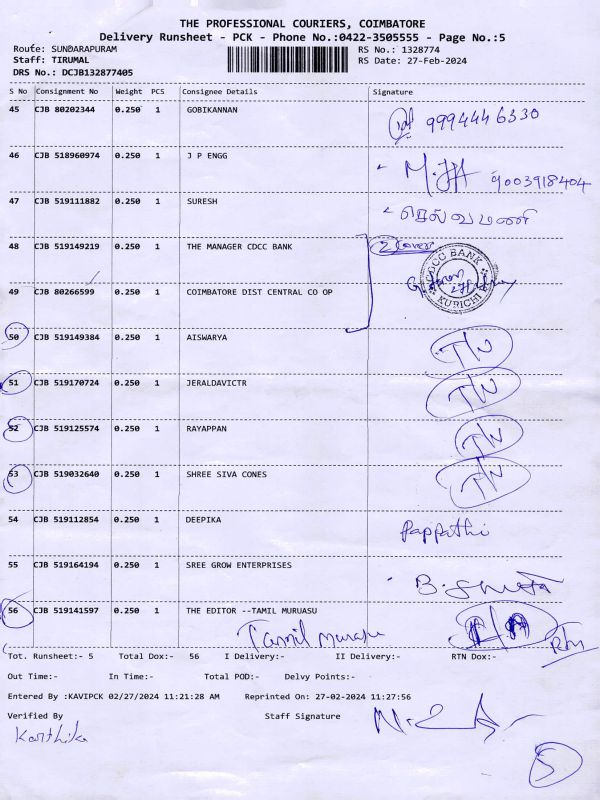 THE PROFESSIONAL COURIERS, COIMBATORE
Delivery Runsheet - PCK - Phone No.:0422-3505555 - Page No.:5
Route: SUNDARAPURAM RS No.: 1328774
Staff: TIRUMAL RS Date: 27-Feb-2024
DRS No.: DCJB132877405
S No Consignment No Weight PCS Consignee Details Signature
45 CJB 80202344 0.250 1 GOBIKANNAN 9994446330
46 CJB 518960974 0.250 1 J P ENGG 9003918404
47 CJB 519111882 0.250 1 SURESH செல்வமணி
48 CJB 519149219 0.250 1 THE MANAGER CDCC BANK 2 cover
CDCC BANK
KURICHI
49 CJB 80266599 0.250 1 COIMBATORE DIST CENTRAL CO OP
50 CJB 519149384 0.250 1 AISWARYA
51 CJB 519170724 0.250 1 JERALDAVICTR
52 CJB 519125574 0.250 1 RAYAPPAN
53 CJB 519032640 0.250 1 SHREE SIVA CONES
54 CJB 519112854 0.250 1 DEEPIKA Pappathi
55 CJB 519164194 0.250 1 SREE GROW ENTERPRISES
56 CJB 519141597 0.250 1 THE EDITOR --TAMIL MURUASU
Tamil Rtn
Tot. Runsheet:- 5 Total Dox:- 56 I Delivery:- II Delivery:- RTN Dox:-
Out Time:- In Time:- Total POD:- Delvy Points:-
Entered By :KAVIPCK 02/27/2024 11:21:28 AM Reprinted On: 27-02-2024 11:27:56
Verified By Staff Signature
Karthika
5